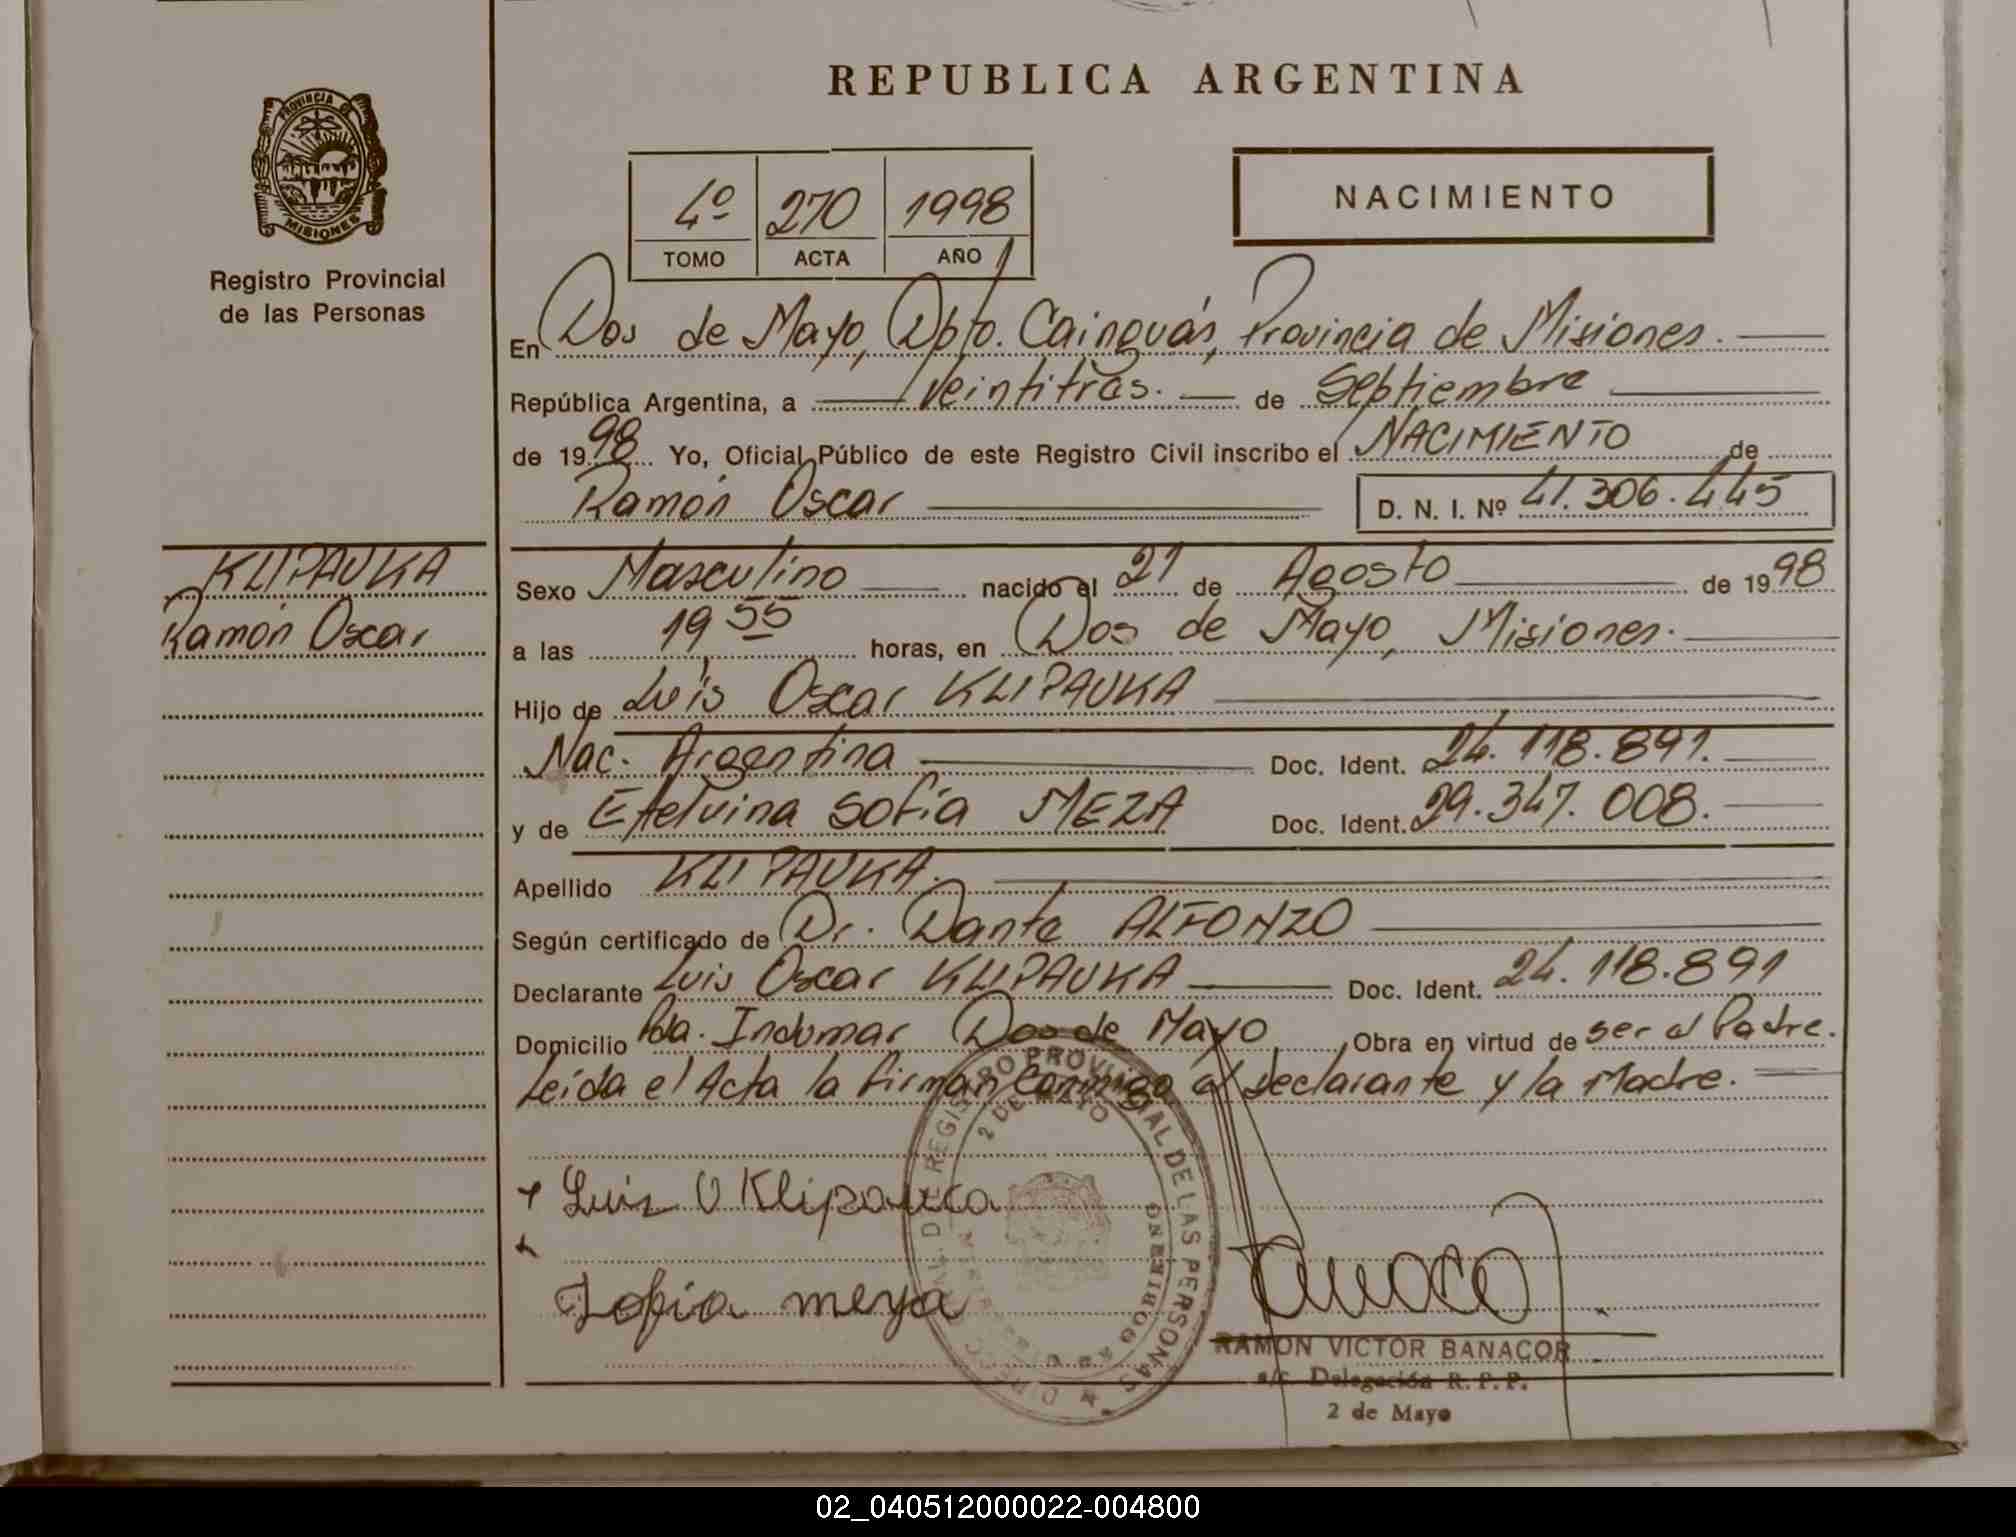 REPUBLICA ARGENTINA
PROVINCIA DE
MISIONES
Registro Provincial
de las Personas
4º 270 1998
TOMO ACTA AÑO
NACIMIENTO
En Dos de Mayo, Dpto. Cainguás, Provincia de Misiones.
República Argentina, a veintitrés. de Septiembre
de 1998 Yo, Oficial Público de este Registro Civil inscribo el NACIMIENTO de
Ramón Oscar D. N. I. Nº 41.306.445
KLIPAUKA
Ramón Oscar
Sexo Masculino nacido el 21 de Agosto de 1998
a las 19 55 horas, en Dos de Mayo, Misiones.
Hijo de Luis Oscar KLIPAUKA
Nac. Argentina Doc. Ident. 24.118.891.
y de Etelvina Sofía MEZA Doc. Ident. 29.347.008.
Apellido KLIPAUKA.
Según certificado de Dr. Dante ALFONZO
Declarante Luis Oscar KLIPAUKA Doc. Ident. 24.118.891
Domicilio Pda. Indumar Dos de Mayo Obra en virtud de ser el Padre.
Leída el Acta la firman conmigo el Declarante y la Madre.
DE REGISTRO PROVINCIAL DE LAS PERSONAS
2 DE MAYO
Luis O Klipauca
Sofia meza
RAMON VICTOR BANACOR
a/c Delegación R. P. P.
2 de Mayo
02_040512000022-004800